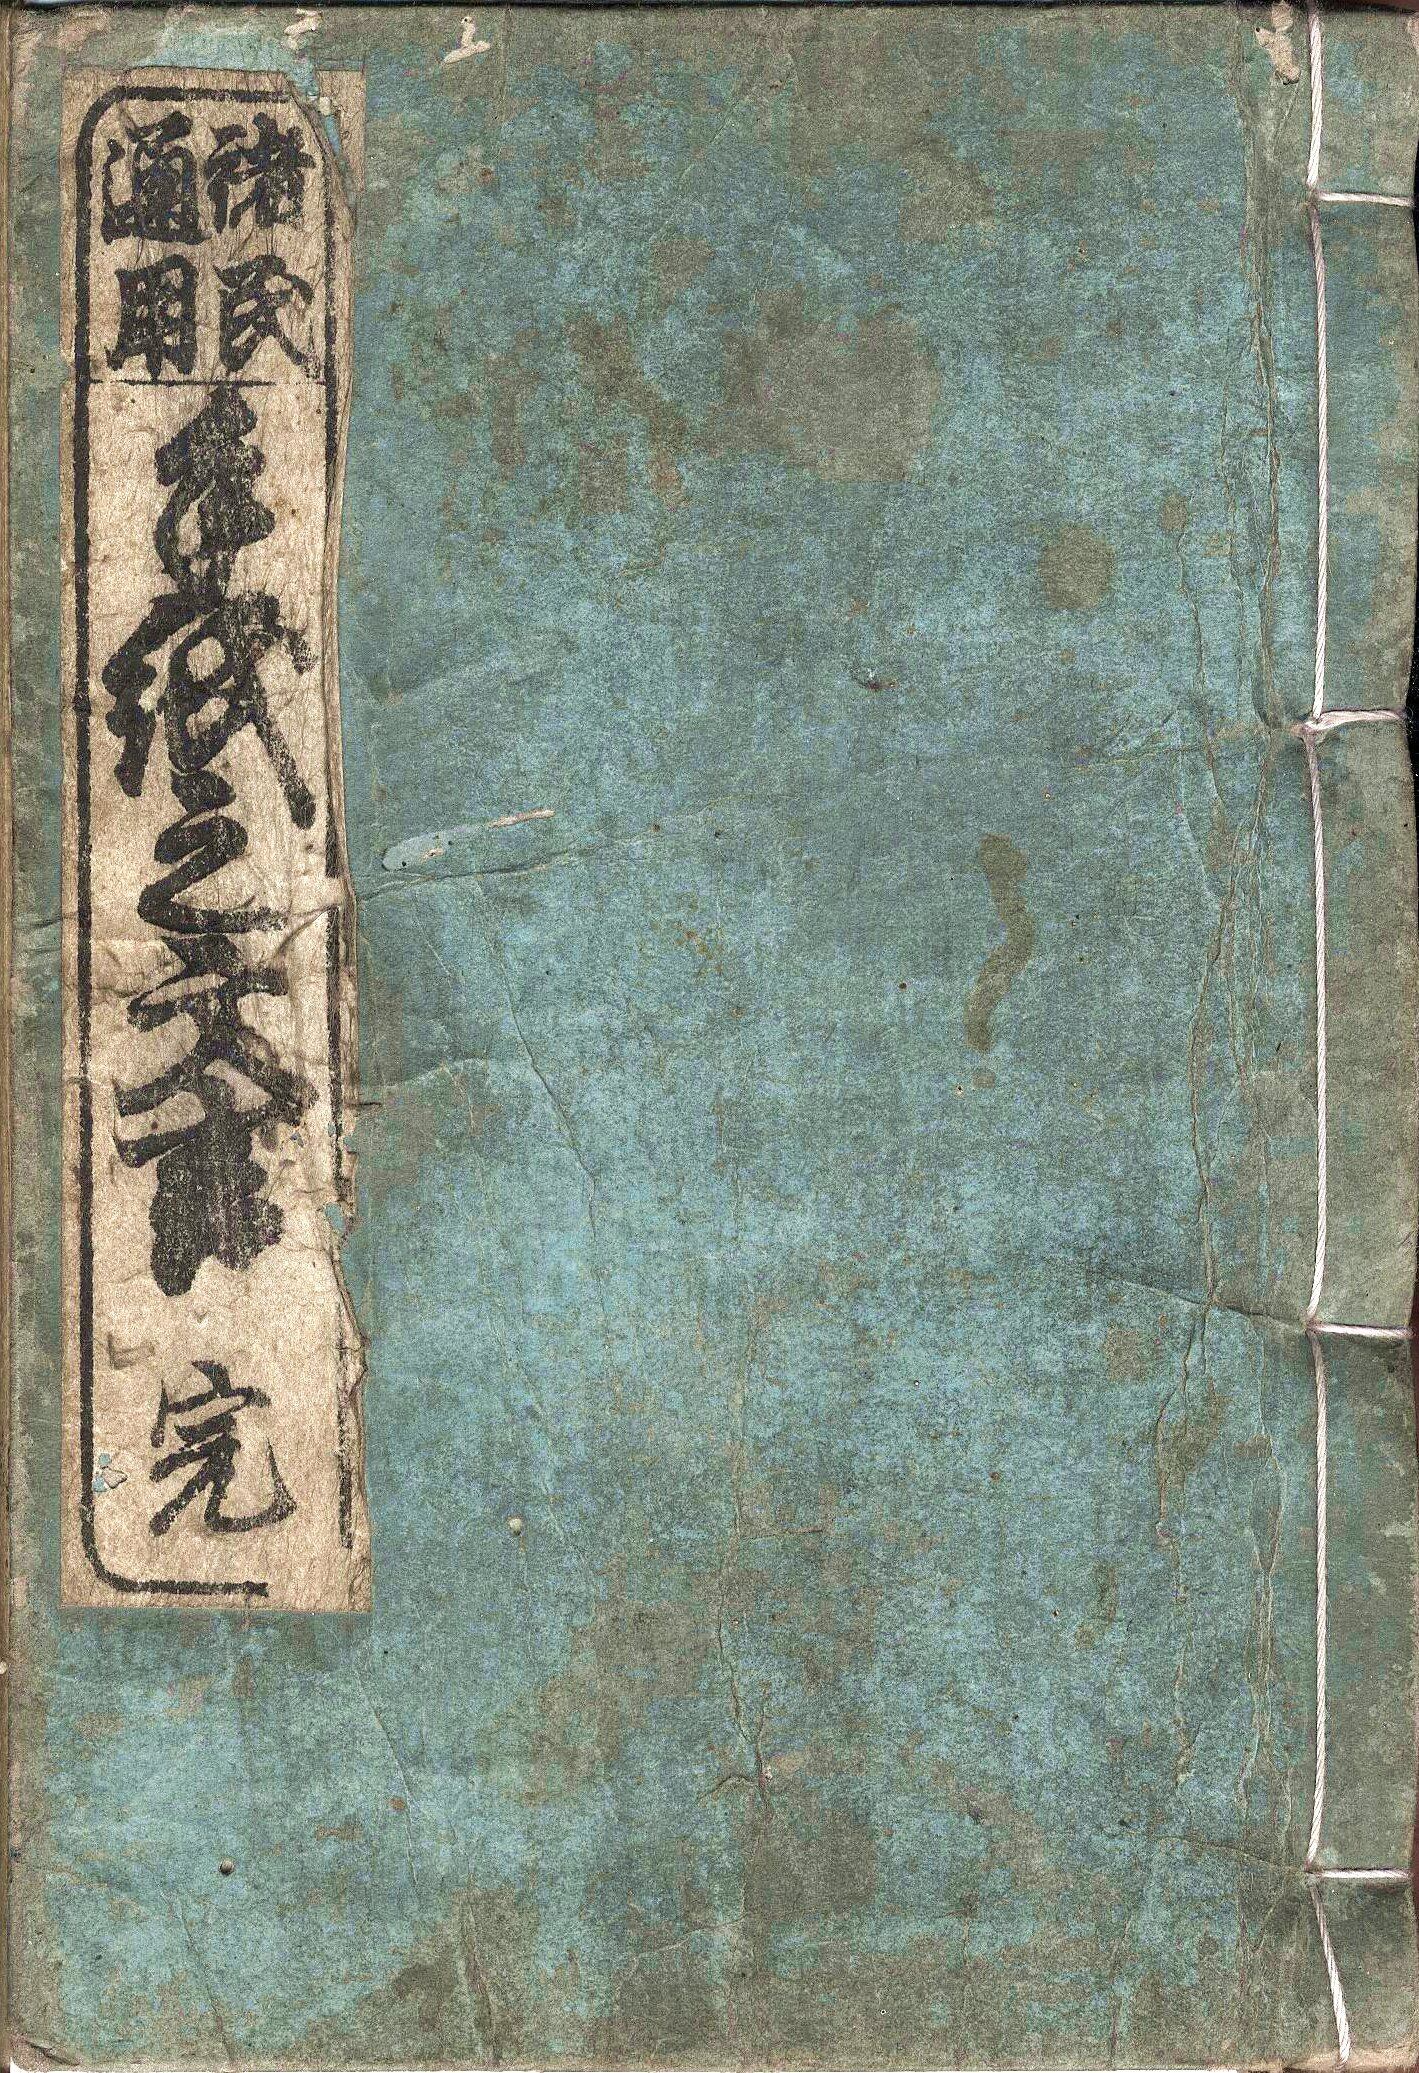 諸民
通用
手紙之文
完